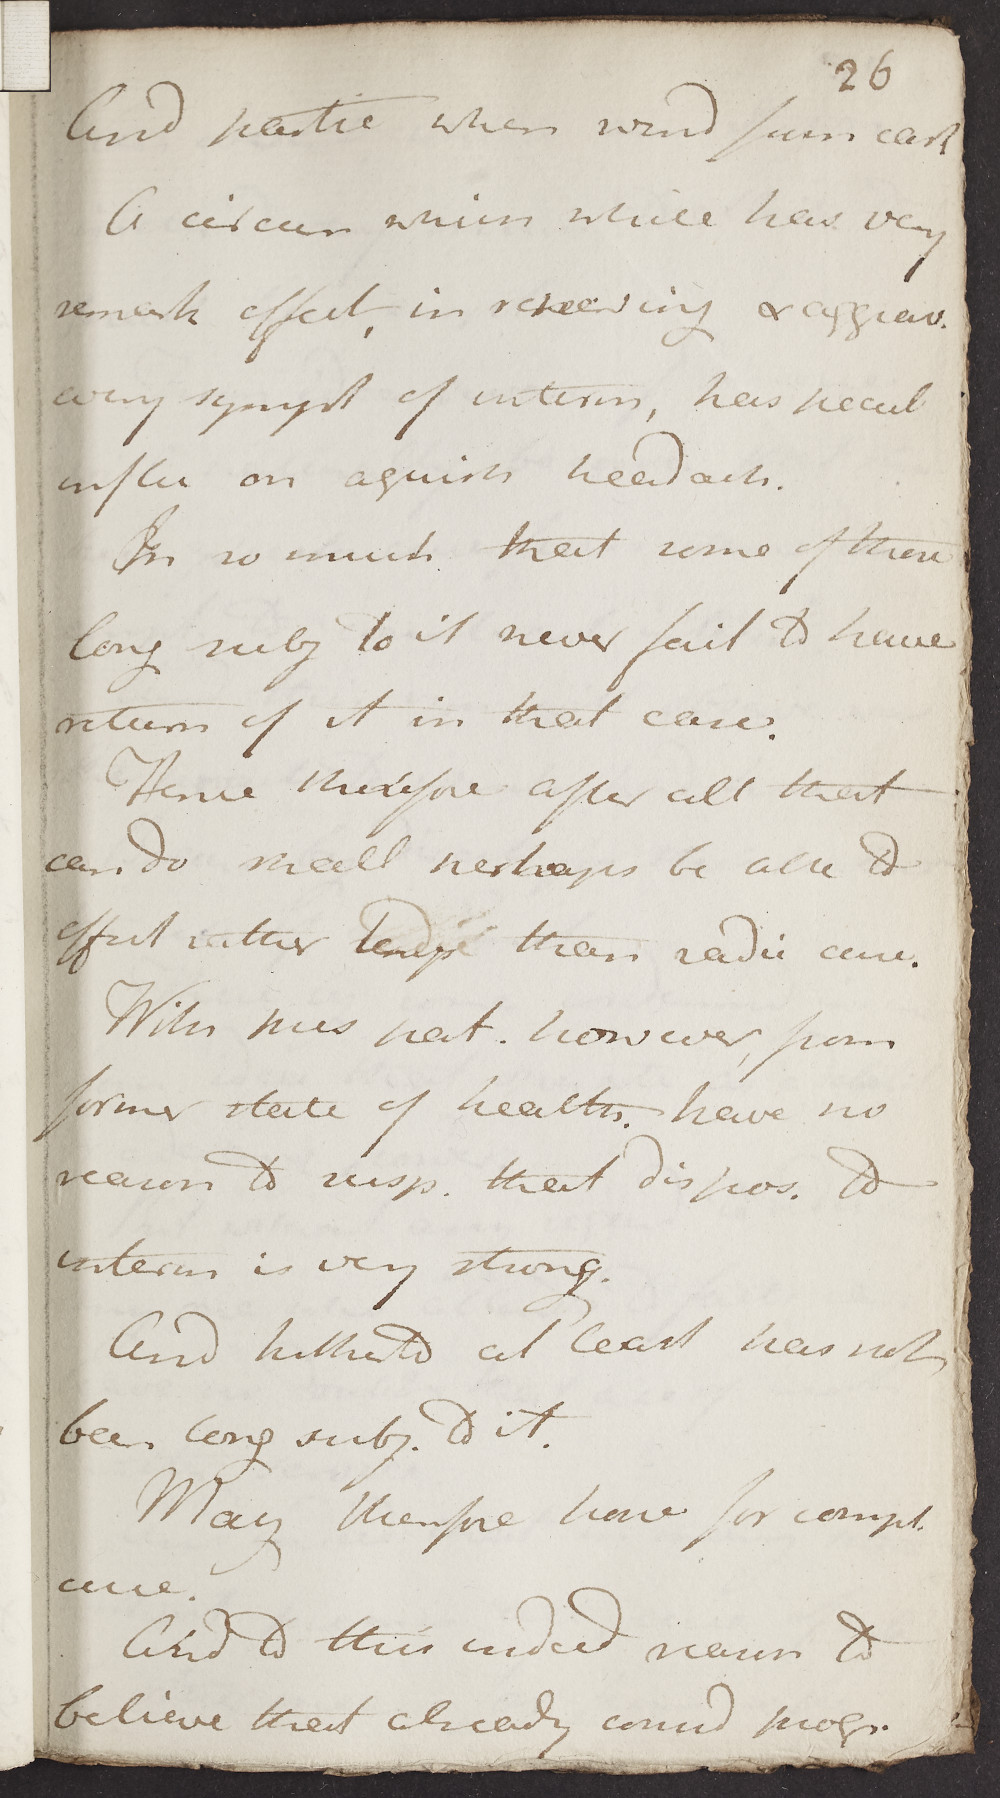 26
And partic when wind from east
A circum whien while has very
remark effect, in renewing & aggrav.
every sympt of interm, has pecul
influ on aguish headach.
In so much that some of those
long subj to it never fail to have
return of it in that case.
Hence therefore after all that
can do shall perhaps be able to
effect rather temp than radic cure.
With pres pat. however, from
former state of health. have no
reason to susp. that dispos. to
interm is very strong.
And hitherto at least has not
been long subj. to it.
May therefore hope for compl.
cure.
And to this indeed reason to
believe that already consid progr.